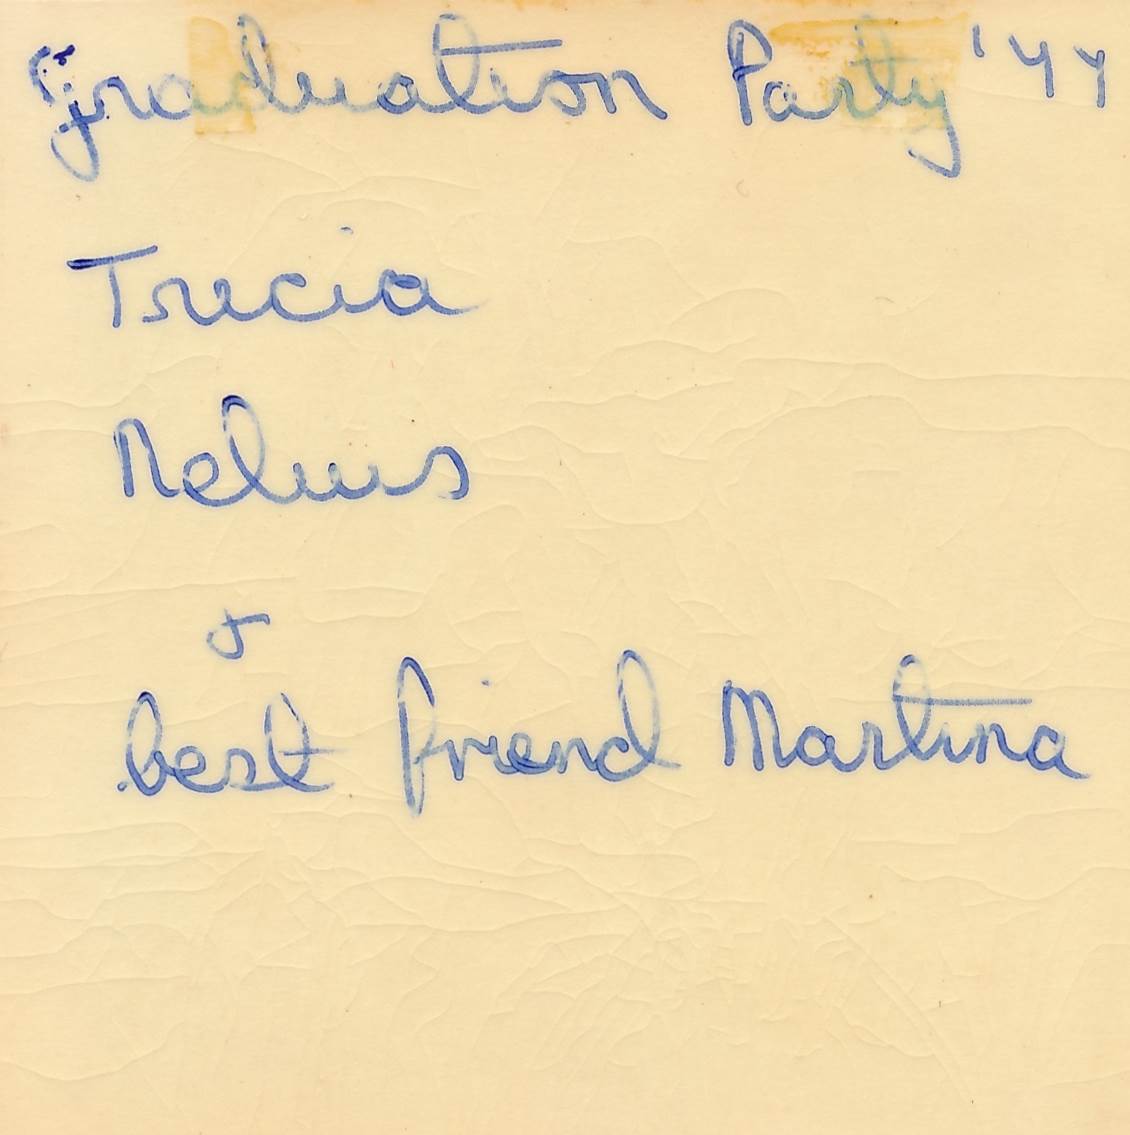 Graduation Party '77
Tricia
Nelms
&
best friend Martina